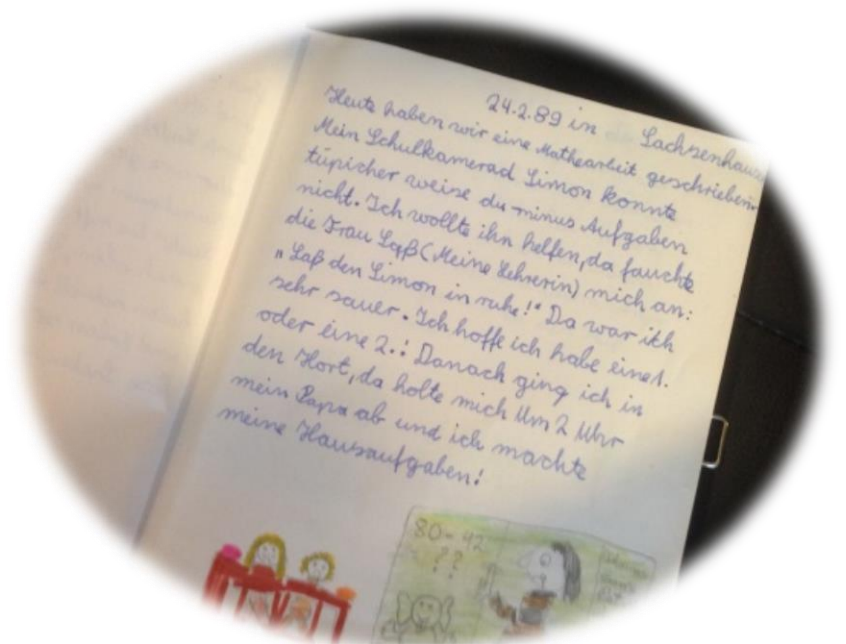 24.2.89 in Sachsenhausen
Heute haben wir eine Mathearbeit geschrieben.
Mein Schulkamerad Simon konnte
tüpischer weise du minus Aufgaben
nicht. Ich wollte ihn helfen, da fauchte
die Frau (Meine Lehrerin) mich an:
"Laß den Simon in ruhe!" Da war ich
sehr sauer. Ich hoffe ich habe eine 1.
oder eine 2.! Danach ging ich in
den Hort, da holte mich Um 2 Uhr
mein Papa ab und ich machte
meine Hausaufgaben!
80-42
??